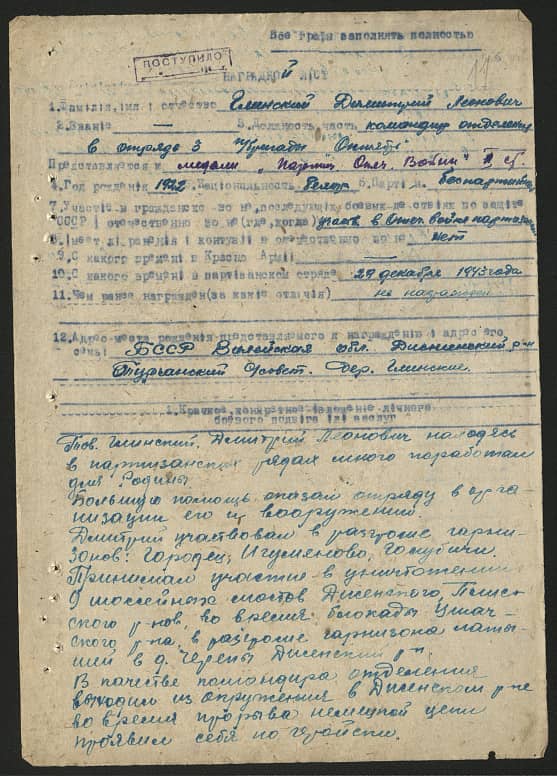 Все графы заполнять полностью
ПОСТУПИЛО
НАГРАДНОЙ ЛИСТ
1.Фамилия,имя и отчество Глинский Димитрий Леонович
2.Звание — 3.Должность,часть командир отделения
в отряде 3 бригады "Октябрь"
Представляется к медали "Партиз. Отеч. Войны" II ст.
4.Год рождения 1922 5.Национальность белор 6.Партийн. беспартийный
7.Участие в гражданско во не,последующих боевых действиях по защите
СССР и отечественно во не(где,когда) участ. в Отеч войне партизаном
8.Имеет ли ранения и контузии в отечественно во не нет
9.С какого времени в Красно Армии —
10.С какого времени в партизанском отряде 29 декабря 1943 года
11.Чем ранее награжден(за какие отличия) не награжден
12.Адрес места рождения представляемого к награждению и адрес его
семьи БССР Вилейская обл. Дисненский р-н
Гурьанский с/совет. Дер. Глинские.
1.Краткое,конкретное изложение личного
боевого подвига или заслуг
Тов. Глинский, Дмитрий Леонович находясь
в партизанских рядах много поработал
для Родины
Большую помощь оказал отряду в орга-
низации его и вооружении.
Дмитрий участвовал в разгроме гарни-
зонов: Городец, Игуменово, Голубичи.
Принимал участие в уничтожении
9 шоссейных мостов Дисенского,
ского р-нов, во время блокады Ушач-
ского р-на, в разгроме гарнизона латы-
шей в д. Черепы Дисенский р-н.
В качестве командира отделения
выходил из окружения в Дисенском р-не
во время прорыва немецкой цепи
проявил себя по геройски.